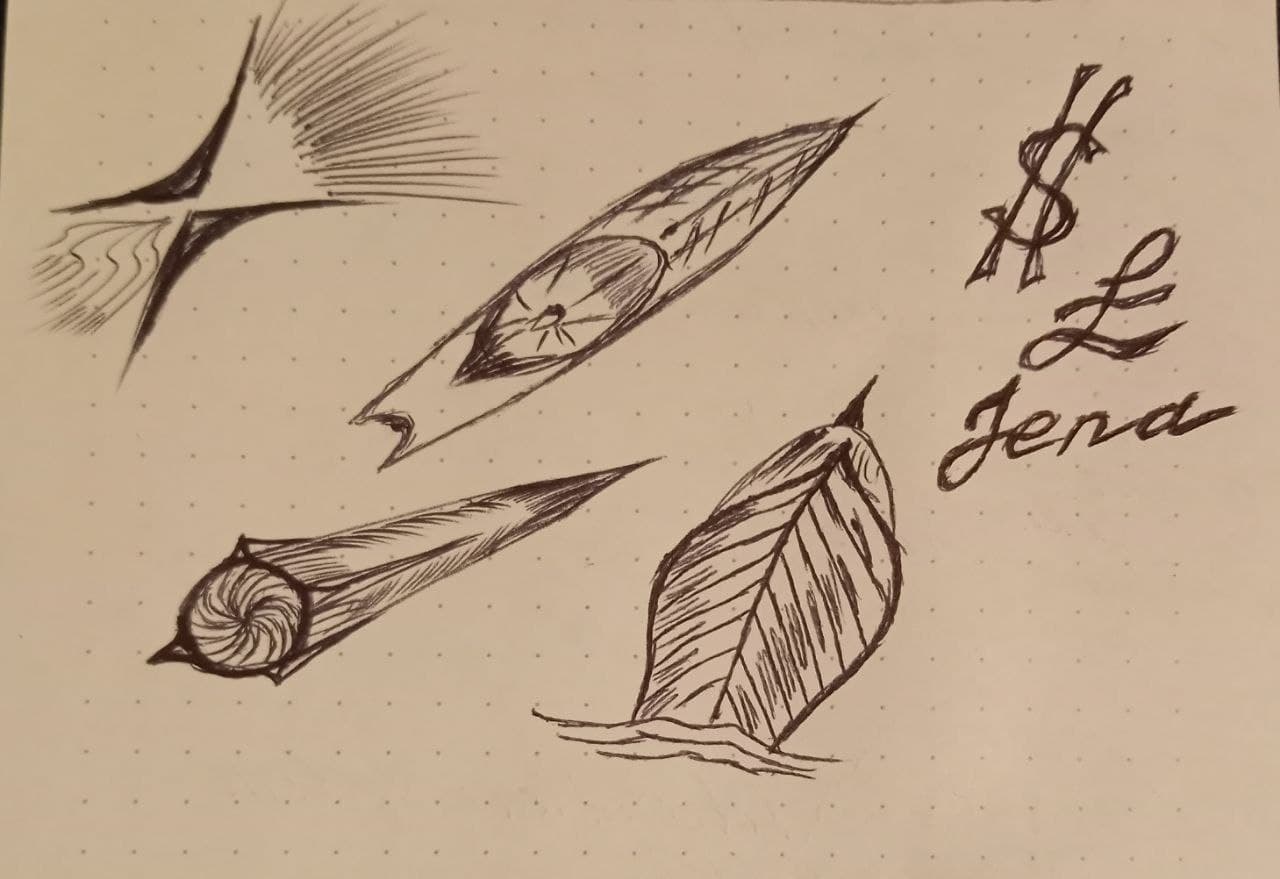 $
£
Jena